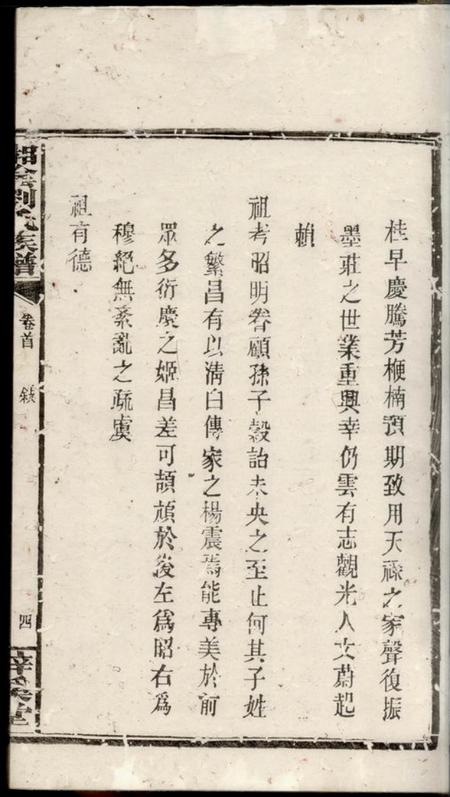 桂早慶騰芳楩楠預期致用天祿之家聲復振
墨莊之世業重興幸仍雲有志觀光人文蔚起
賴
祖考昭明眷顧孫子穀詒未央之至止何其子姓
之繁昌有以清白傳家之楊震焉能專美於前
眾多衍慶之姬昌差可頡頏於後左爲昭右爲
穆絕無紊亂之疏虞
祖有德
劉氏族譜
卷首
敘
四
堂